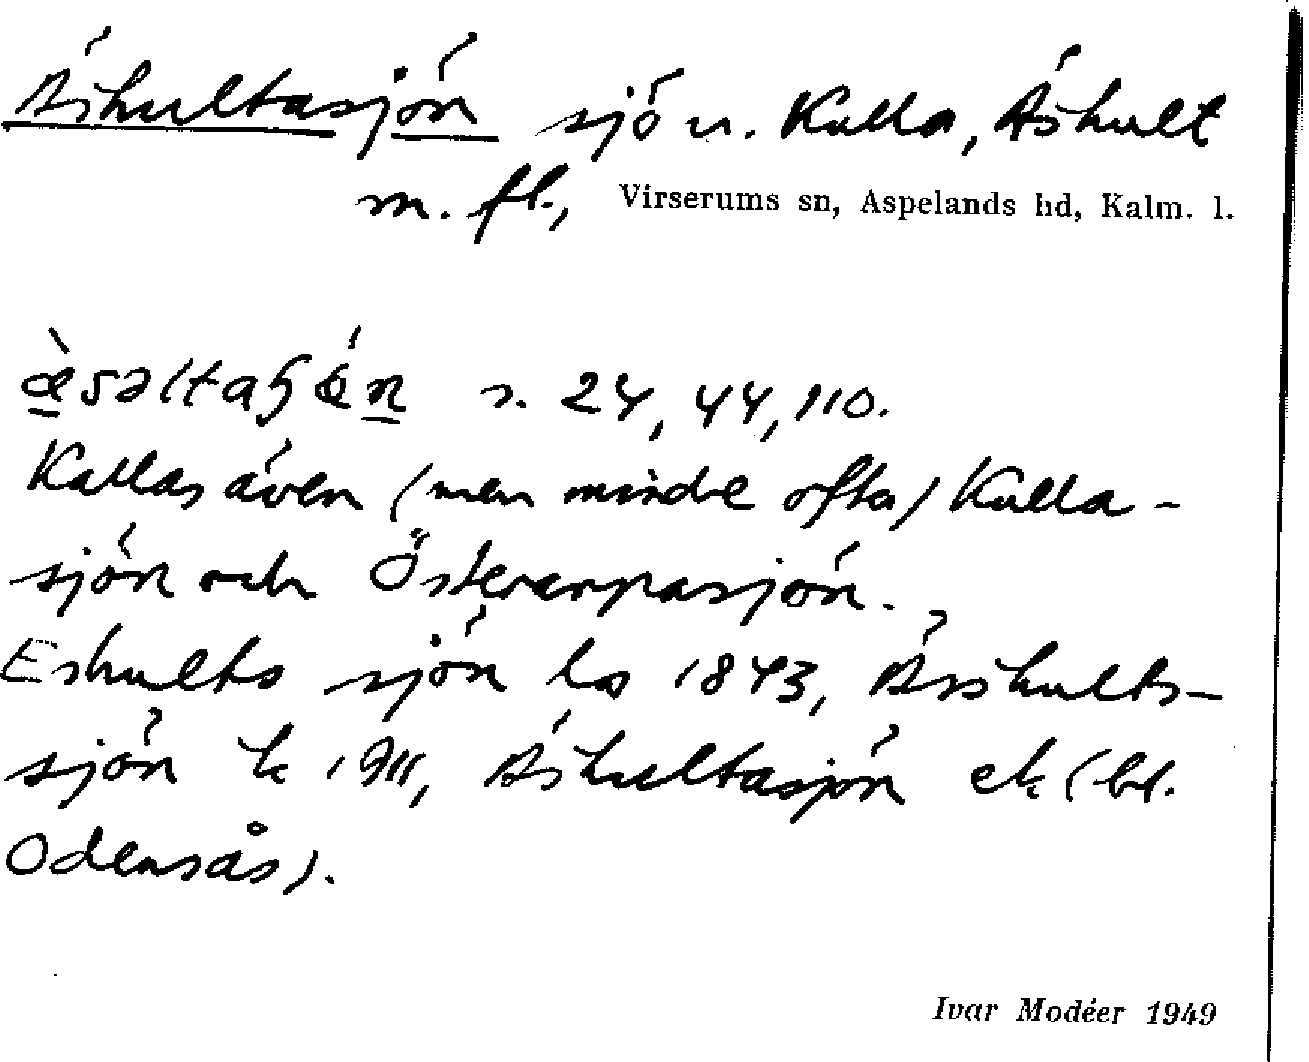 Äshultasjön sjö u. Kulla, Äshult
m. fl., Virserums sn, Aspelands hd, Kalm. l.
æ̀səltaɧǿn s. 24, 44, 110.
Kallas även (men mindre ofta) Kulla-
sjön och Österarpasjön.
Eshults sjön ls 1843, Ässhults-
sjön k 1911, Äshultasjön ek (bl.
Odensås).
Ivar Modéer 1949